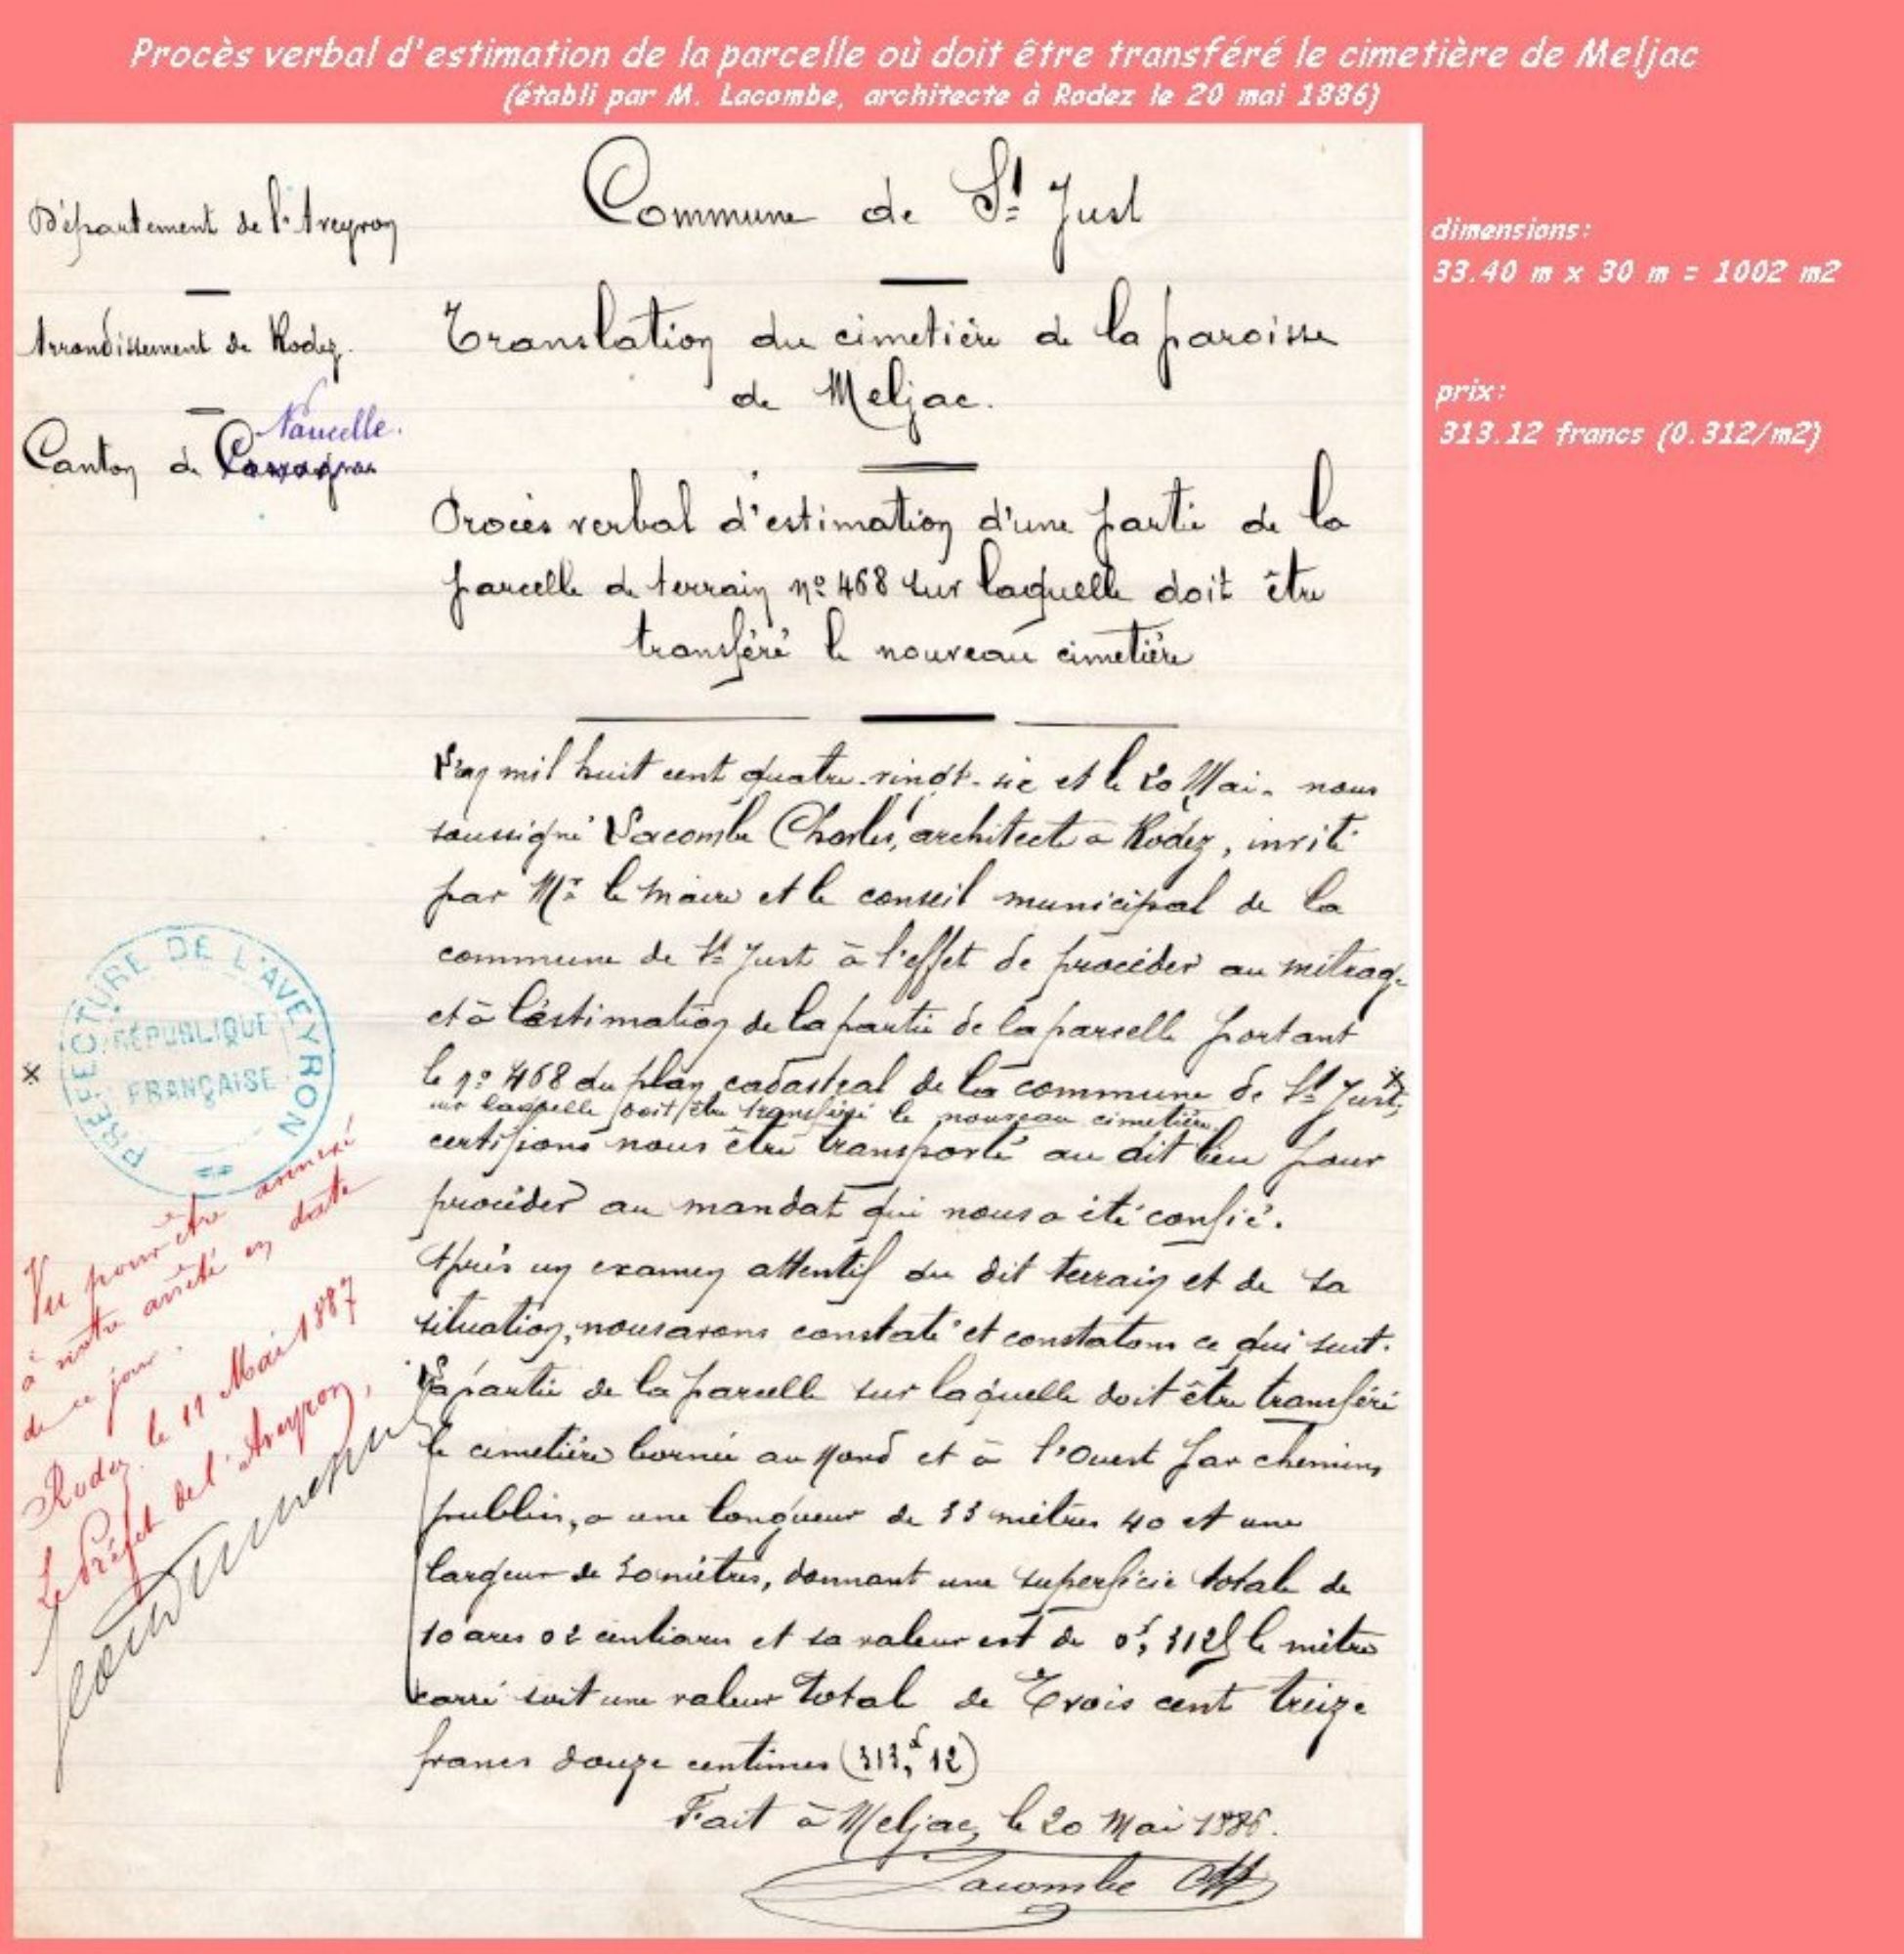 Procès verbal d'estimation de la parcelle où doit être transféré le cimetière de Meljac
(établi par M. Lacombe, architecte à Rodez le 20 mai 1886)
Département de l'Aveyron
Arrondissement de Rodez.
Naucelle.
Canton de
Commune de St Just
Translation du cimetière de la paroisse
de Meljac.
Procès verbal d'estimation d'une partie de la
parcelle de terrain no 468 sur laquelle doit être
transféré le nouveau cimetière
dimensions:
33.40 m x 30 m = 1002 m2
prix:
313.12 francs (0.312/m2)
L'an mil huit cent quatre-vingt-six et le 20 Mai. nous
soussigné Lacombe Charles, architecte à Rodez, invité
par Mr le Maire et le conseil municipal de la
commune de St Just à l'effet de procéder au métrage
et à l'estimation de la partie de la parcelle portant
le no 468 du plan cadastral de la commune de St Just,
sur laquelle doit être transféré le nouveau cimetière,
certifions nous être transporté au dit lieu pour
procéder au mandat qui nous a été confié.
Après un examen attentif du dit terrain et de sa
situation, nous avons constaté et constatons ce qui suit.
La partie de la parcelle sur laquelle doit être transféré
le cimetière bornée au Nord et à l'Ouest par chemins
publics, a une longueur de 33 mètres 40 et une
largeur de 30 mètres, donnant une superficie totale de
10 ares 02 centiares et sa valeur est de 0f, 3125 le mètre
carré soit une valeur total de Trois cent treize
francs douze centimes (313,f 12)
Fait à Meljac, le 20 Mai 1886.
Lacombe
PRÉFECTURE DE L'AVEYRON
RÉPUBLIQUE
FRANÇAISE
Vu pour être annexé
à notre arrêté en date
de ce jour.
Rodez, le 11 Mai 1887
Le Préfet de l'Aveyron,